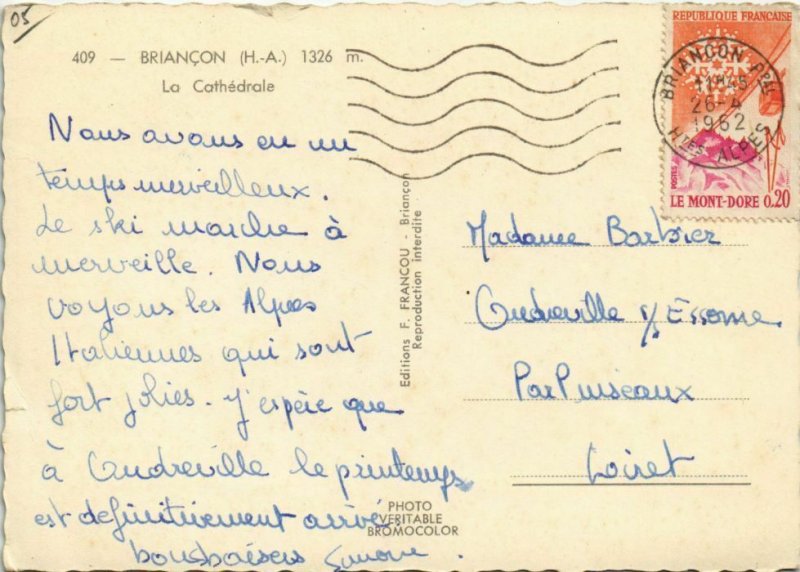 05
409 — BRIANÇON (H.-A.) 1326 m.
La Cathédrale
Nous avons eu un
temps merveilleux.
Le ski marche à
merveille. Nous
voyons les Alpes
Italiennes qui sont
fort jolies. J'espère que
à Ondreville le printemps
est definitivement arrivé.
bons baisers Simone.
Editions F. FRANCOU - Briançon
Reproduction interdite
PHOTO
VERITABLE
BROMOCOLOR
REPUBLIQUE FRANÇAISE
POSTES
LE MONT-DORE 0,20
BRIANÇON PPAL
11H45
26-4
1962
HTES ALPES
Madame Barbier
Ondreville s/Essonne
Par Puiseaux
Loiret